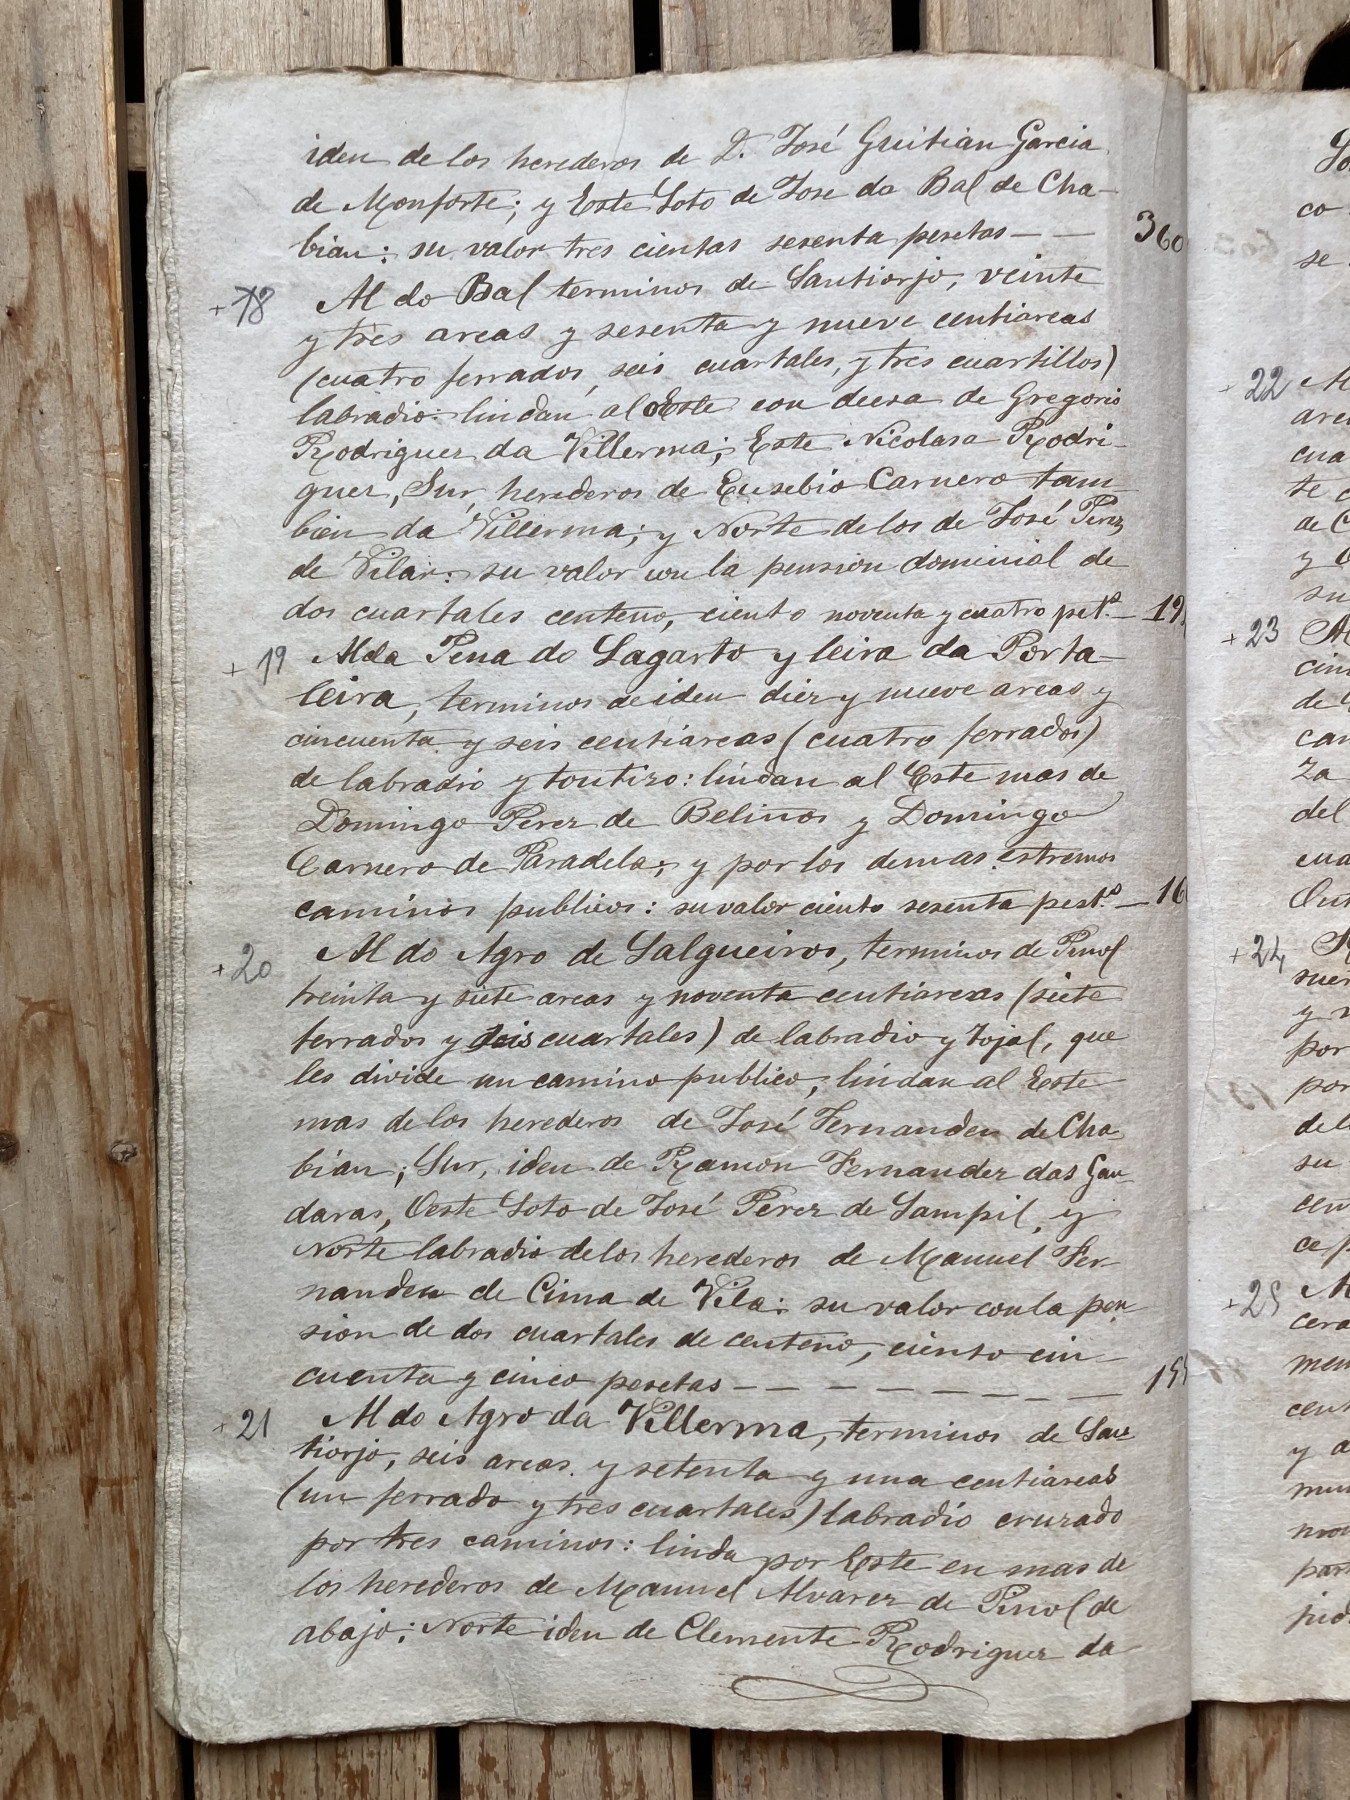 iden de los herederos de D. José Guitian Garcia
de Monforte; y Este Soto de Jose da Bal de Cha-
bian: su valor tres cientas sesenta pesetas — — 360
+ 18 Al do Bal terminos de Santiorjo, veinte
y tres areas y sesenta y nueve centiareas
(cuatro ferrados, seis cuartales, y tres cuartillos)
labradio: lindan al Oeste con deesa de Gregorio
Rodriguez da Villerma; Este Nicolasa Rodri-
guez, Sur, herederos de Eusebio Carnero tam
bien da Villerma; y Norte de los de José Perez
de Vilar: su valor con la pension dominial de
dos cuartales centeno, ciento noventa y cuatro pst.s — 19
+ 19 Al da Pena do Lagarto y leira da Porta-
leira, terminos de iden diez y nueve areas y
cincuenta y seis centiareas (cuatro ferrados)
de labradio y toutizo: lindan al Este mas de
Domingo Perez de Belinos y Domingo
Carnero de Paradela; y por los demas estremos
caminos publicos: su valor ciento sesenta pest.s — 16
+ 20 Al do Agro de Salgueiros, terminos de Pinol
treinta y siete areas y noventa centiareas (siete
ferrados y seis cuartales) de labradio y tojal, que
les divide un camino publico; lindan al Este
mas de los herederos de José Fernandez de Cha
bian; Sur, iden de Ramon Fernandez das Gan-
daras, Oeste Soto de José Perez de Sampil, y
Norte labradio de los herederos de Manuel Fer-
nandez de Cima de Vila: su valor con la pen
sion de dos cuartales de centeno, ciento cin-
cuenta y cinco pesetas — — — — — — — — 155
+ 21 Al do Agro da Villerma, terminos de San
tiorjo, seis areas y setenta y una centiareas
(un ferrado y tres cuartales) labradio cruzado
por tres caminos: linda por Este en mas de
los herederos de Manuel Alvarez de Pinol de
abajo; Norte iden de Clemente Rodriguez da
co
se
+ 22
cua
te
de C
y
su
+ 23 Al
cin
de
car
za
del
cua
+ 24
y
por
por
de l
su
cen
ce p
+ 25
cera
men
cent
y a
mun
part
jud